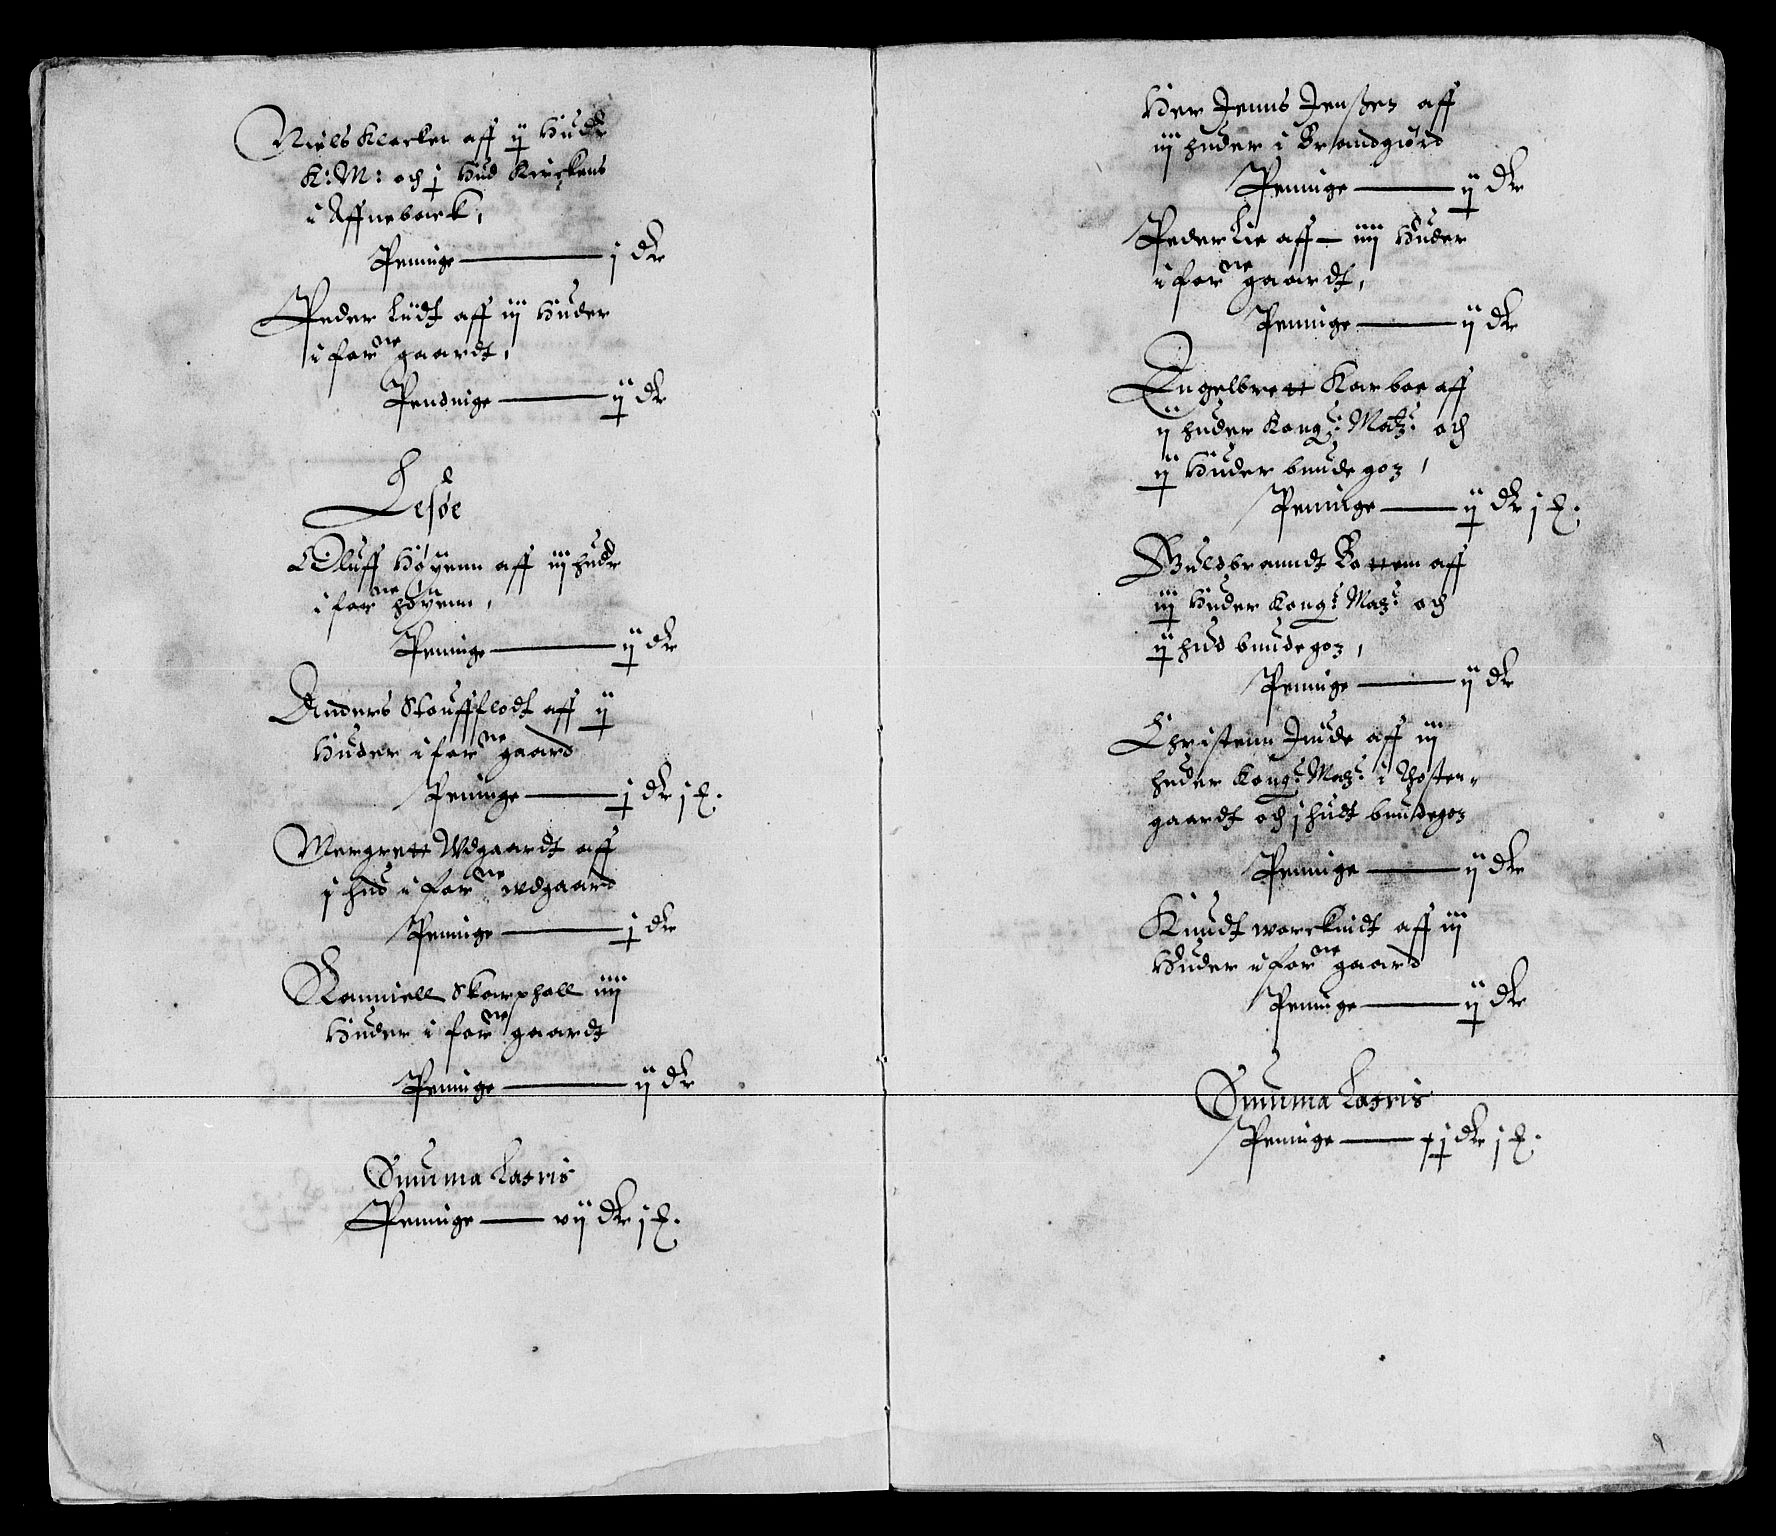 Niels Klocker aff ij Hudr
K: M: och j Hud Kirckens
i Affneback,
Penninge — j dlr
Peder Ludt aff iij Huder
i forne gaardt,
Pendnige — ij dlr
Lesøe
Oluff Høyenn aff iij hudr
i forne høyenn,
Penninge — ij dlr
Anders Stouffflodt aff ij
Huder i forne gaard
Penninge — j dlr j
Mergrett Udgaardt aff
j hud i forne udgaard
Penninge — j dlr
Ramniell Skarphall iiij
Huder i forne gaardt
Penninge — ij dlr
Summa Latris
Penninge — vij dlr j
Her Jenns Jenßen aff
iij huder i Brandgiord
Penninge — ij dlr
Peder Lie aff — iiij Huder
i forne gaardt,
Penninge — ij dlr
Engelbrett Karboe aff
ij huder Kong: Matz: och
ij Huder bundegoz,
Penninge — ij dlr j
Guldbranndt Bottem aff
iij Huder Kong: Maz: och
ij hud bundegoz,
Penninge — ij dlr
Christenn Jude aff iij
huder Kong: Maz: i Thosten-
gaardt och j hudt bundegoz
Penninge — ij dlr
Knudt workindt aff iij
Huder i forne gaard
Penninge — ij dlr
Summa Latris
Penninge — xj dlr j